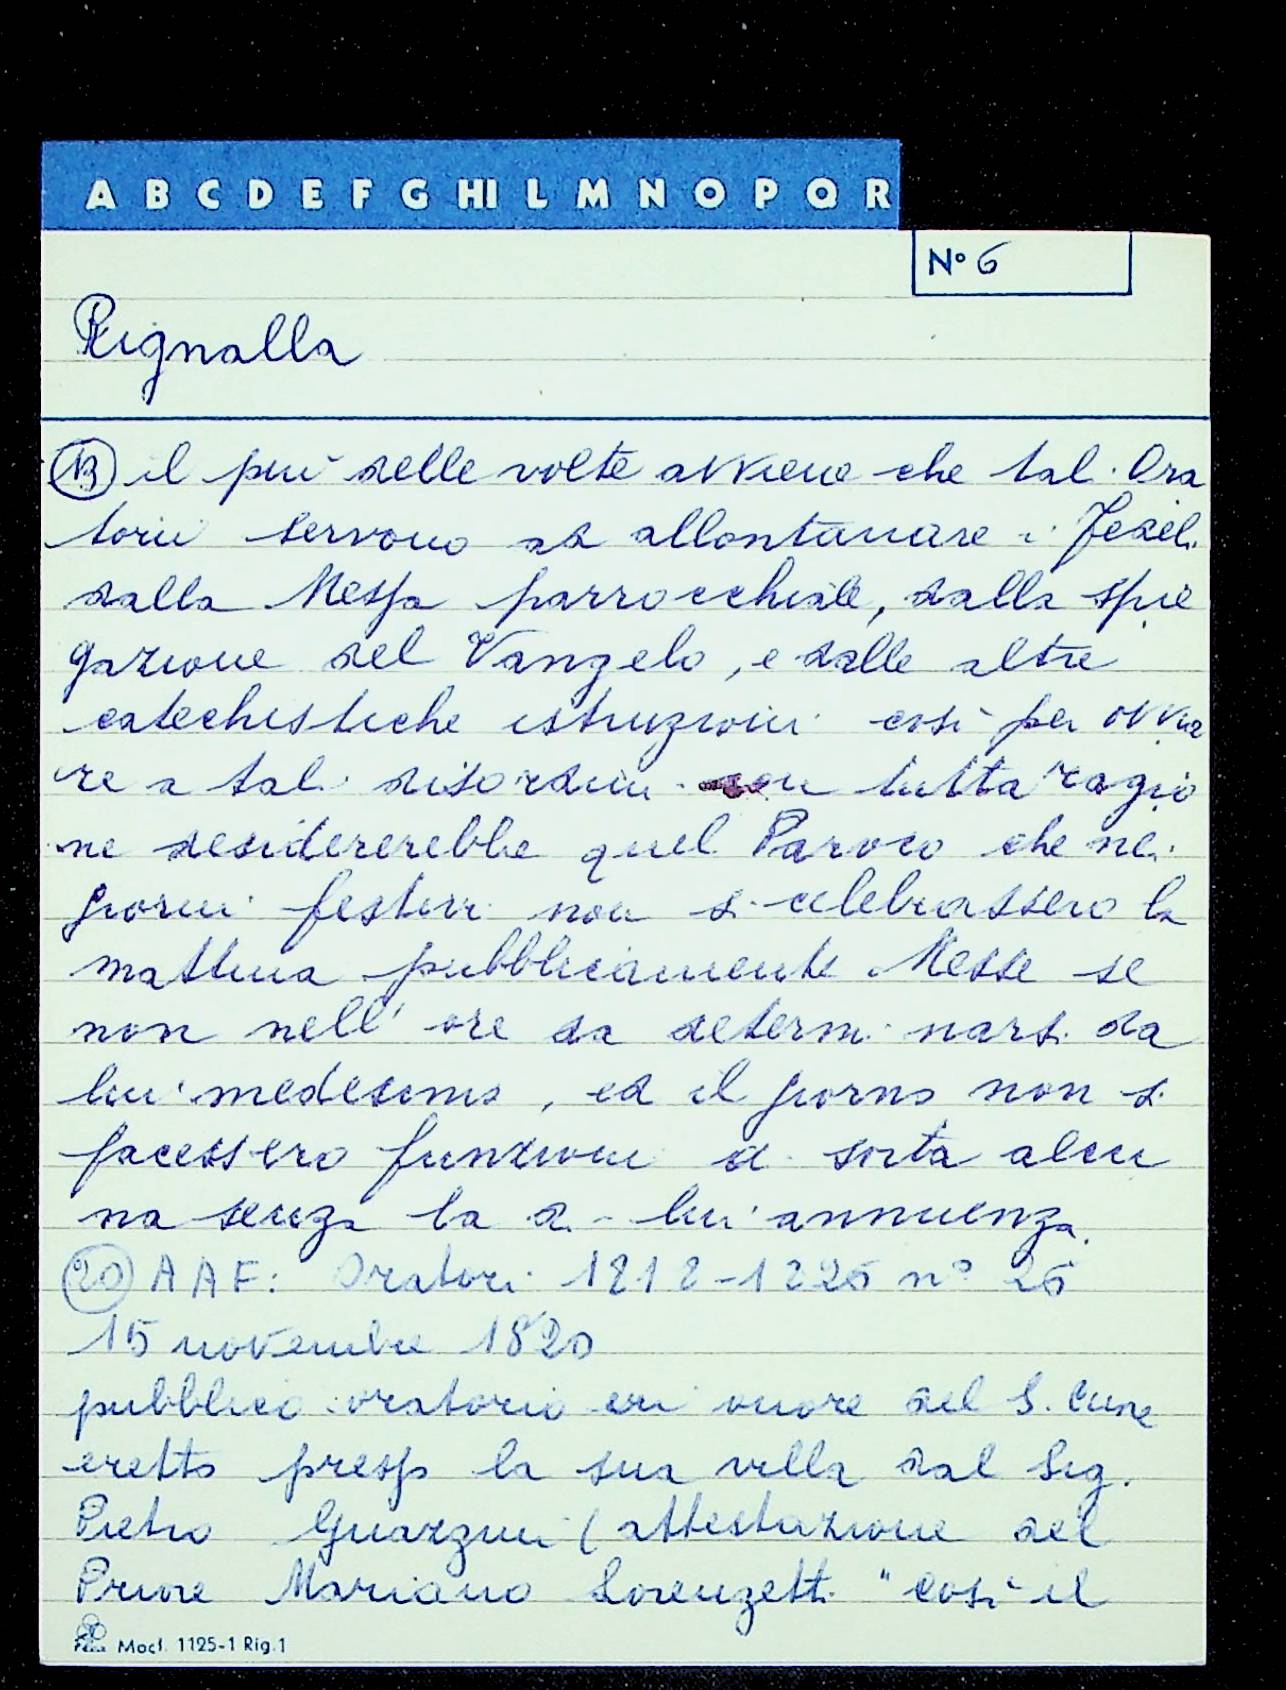 A B C D E F G HI L M N O P Q R
N° 6
Rignalla
13 il più delle volte avviene che tali Ora
torii servono ad allontanare i Fedeli
dalla Messa parrocchiale, dalla spie
gazione del Vangelo, e dalle altre
catechistiche istruzioni così per ovvia
re a tali disordini con tutta ragio
ne desidererebbe quel Paroco che nei
giorni festivi non si celebrassero la
mattina pubblicamente Messe se
non nell' ore da determinarsi da
lui medesimo, ed il giorno non si
facessero funzioni di sorta alcu
na senza la di lui annuenza.
20 AAF: Oratori 1818-1826 n° 26
15 novembre 1820
pubblico oratorio in onore del S. Cuore
eretto presso la sua villa dal Sig.
Pietro Guarzini (attestazione del
Priore Mariano Lorenzetti "così il
Mod. 1125-1 Rig.1